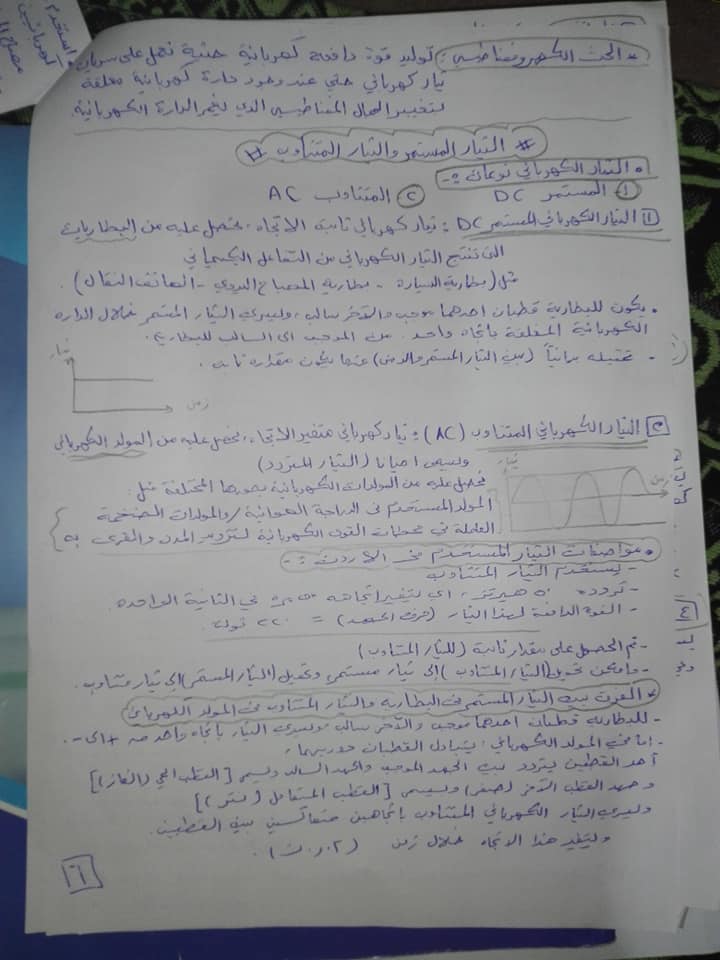 * الحث الكهرومغناطيسي: توليد قوة دافعة كهربائية حثية تعمل على سريان
تيار كهربائي حثي عند وجود دارة كهربائية مغلقة
لتغيير المجال المغناطيسي الذي يغمر الدارة الكهربائية.
# التيار المستمر والتيار المتناوب #
• التيار الكهربائي نوعان :-
١ المستمر DC ٢ المتناوب AC
١ التيار الكهربائي المستمر DC : تيار كهربائي ثابت الاتجاه، نحصل عليه من البطاريات
التي تنتج التيار الكهربائي من التفاعل الكيميائي
مثل (بطارية السيارة - بطارية المصباح اليدوي - الهاتف النقال).
• يكون للبطارية قطبان احدهما موجب والآخر سالب، ويسري التيار المستمر خلال الداره
الكهربائية المغلقة باتجاه واحد من الموجب الى السالب للبطارية.
- تمثيله بيانياً (بين التيار المستمر والزمن) عندما يكون مقداره ثابت.
تيار
زمن
٢ التيار الكهربائي المتناوب (AC) : تيار كهربائي متغير الاتجاه، نحصل عليه من المولد الكهربائي
ويسمى احيانا (التيار المتردد)
تيار
زمن
نحصل عليه من المولدات الكهربائية بصورها المختلفة مثل:
المولد المستخدم في الدراجة الهوائية / والمولدات الضخمة
العاملة في محطات القوى الكهربائية لتزويد المدن والقرى به
• مواصفات التيار المستخدم في الاردن :-
- يستخدم التيار المتناوب
- تردده ٥٠ هيرتز، اي يتغير اتجاهه ٥٠ مرة في الثانية الواحده.
- القوة الدافعة لهذا التيار (فرق الجهد) = ٢٢٠ فولت.
- تم الحصول على مقدار ثابت (للتيار المتناوب)
- وامكن تحويل (التيار المتناوب) إلى تيار مستمر وتحويل (التيار المستمر) إلى تيار متناوب.
* الفرق بين التيار المستمر في البطارية والتيار المتناوب في المولد الكهربائي
- للبطارية قطبان احدهما موجب والآخر سالب ويسري التيار باتجاه واحد من + الى -.
- اما في المولد الكهربائي: يتبادل القطبان دوريهما،
أحد القطبين يتردد بين الجهد الموجب والجهد السالب ويسمى [القطب الحي (الفاز)]
و جهد القطب الآخر (صفر) ويسمى [القطب المتعادل (نتر)]
ويسري التيار الكهربائي المتناوب باتجاهين متعاكسين بين القطبين.
ويتغير هذا الاتجاه خلال زمن (٠,٠٢ ث).
٦